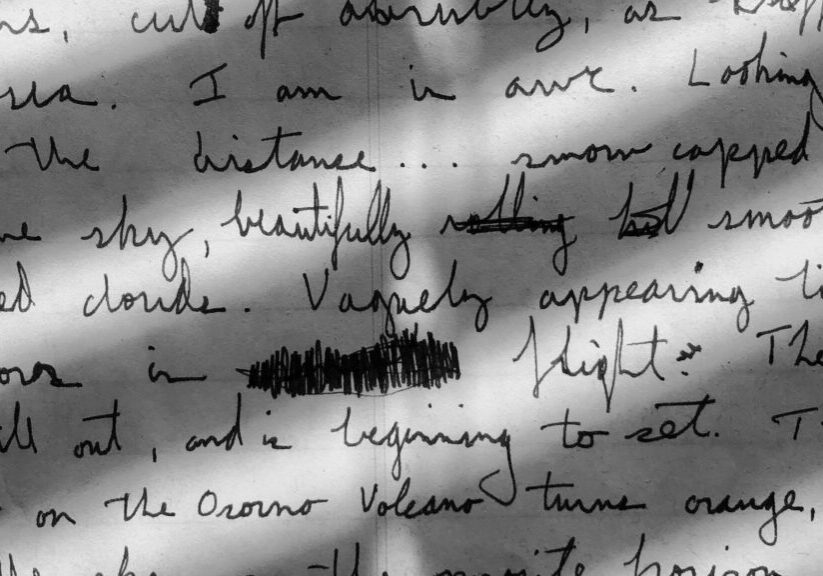 cut off abruptly, as
I am in awe. Looking
the distance... snow capped
sky, beautifully rolling but smoo
ed clouds. Vaguely appearing li
in flight. The
ill out, and is beginning to set. T
on the Osorno Volcano turns orange,
the opposite horizon